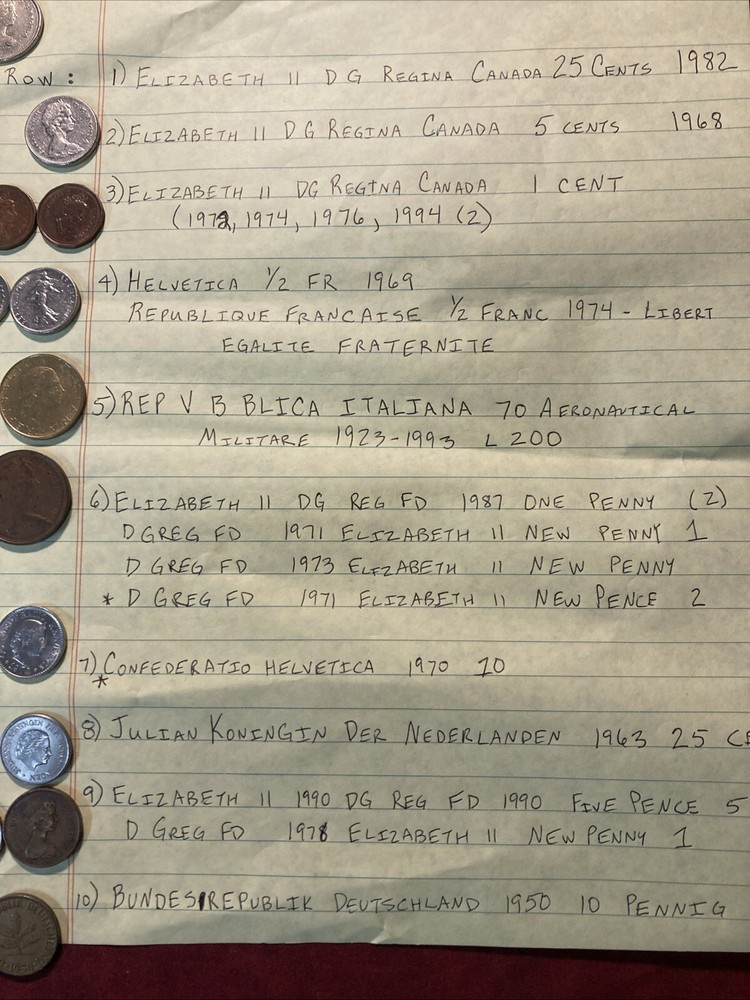 Row: 1) ELIZABETH II D G REGINA CANADA 25 CENTS 1982
2) ELIZABETH II D G REGINA CANADA 5 CENTS 1968
3) ELIZABETH II DG REGINA CANADA 1 CENT
(1972, 1974, 1976, 1994 (2)
4) HELVETICA 1/2 FR 1969
REPUBLIQUE FRANCAISE 1/2 FRANC 1974 - LIBERT
EGALITE FRATERNITE
5) REP V B BLICA ITALIANA 70 AERONAUTICAL
MILITARE 1923-1993 L 200
6) ELIZABETH II DG REG FD 1987 ONE PENNY (2)
D GREG FD 1971 ELIZABETH II NEW PENNY 1
D GREG FD 1973 ELIZABETH II NEW PENNY
* D GREG FD 1971 ELIZABETH II NEW PENCE 2
7) * CONFEDERATIO HELVETICA 1970 10
8) JULIAN KONINGIN DER NEDERLANDEN 1963 25 CE
9) ELIZABETH II 1990 DG REG FD 1990 FIVE PENCE 5
D GREG FD 1978 ELIZABETH II NEW PENNY 1
10) BUNDESREPUBLIK DEUTSCHLAND 1950 10 PENNIG